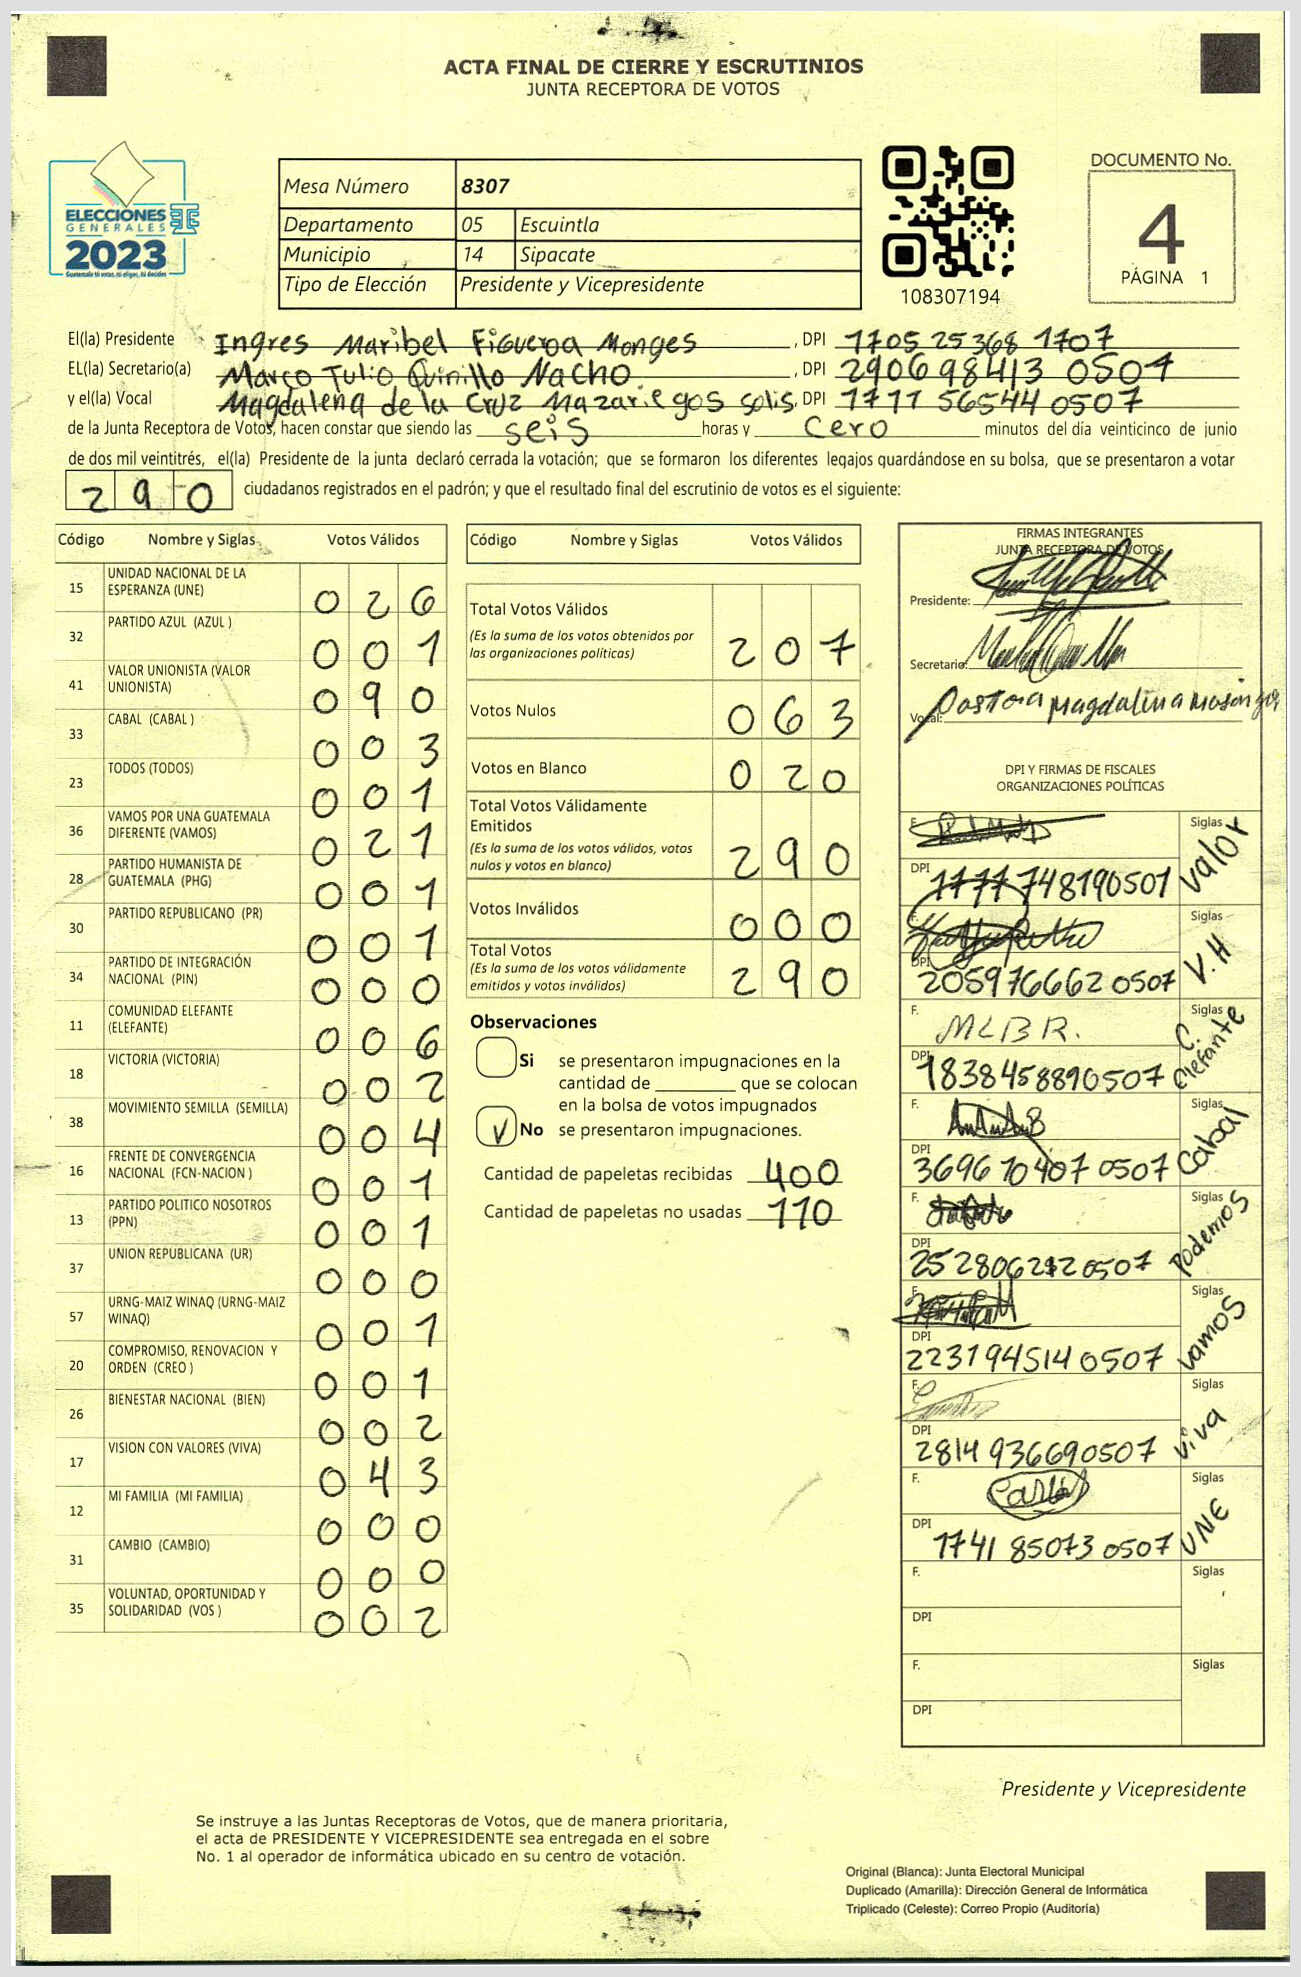 ACTA FINAL DE CIERRE Y ESCRUTINIOS
JUNTA RECEPTORA DE VOTOS
ELECCIONES
GENERALES
2023
Mesa Número 8307
Departamento 05 Escuintla
Municipio 14 Sipacate
Tipo de Elección Presidente y Vicepresidente
108307194
DOCUMENTO No.
4
PÁGINA 1
El(la) Presidente Ingres Maribel Figueroa Monges, DPI 1705 25368 1707
EL(la) Secretario(a) Marco Tulio Quinillo Nacho, DPI 290698413 0507
y el(la) Vocal Magdalena de la Cruz Mazariegos solis, DPI 1777 56544 0507
de la Junta Receptora de Votos, hacen constar que siendo las seis horas y cero minutos del día veinticinco de junio
de dos mil veintitrés, el(la) Presidente de la junta declaró cerrada la votación; que se formaron los diferentes legajos guardándose en su bolsa, que se presentaron a votar
290 ciudadanos registrados en el padrón; y que el resultado final del escrutinio de votos es el siguiente:
Código Nombre y Siglas Votos Válidos
15 UNIDAD NACIONAL DE LA ESPERANZA (UNE) 026
32 PARTIDO AZUL (AZUL ) 001
41 VALOR UNIONISTA (VALOR UNIONISTA) 090
33 CABAL (CABAL ) 003
23 TODOS (TODOS) 001
36 VAMOS POR UNA GUATEMALA DIFERENTE (VAMOS) 021
28 PARTIDO HUMANISTA DE GUATEMALA (PHG) 001
30 PARTIDO REPUBLICANO (PR) 001
34 PARTIDO DE INTEGRACIÓN NACIONAL (PIN) 000
11 COMUNIDAD ELEFANTE (ELEFANTE) 006
18 VICTORIA (VICTORIA) 002
38 MOVIMIENTO SEMILLA (SEMILLA) 004
16 FRENTE DE CONVERGENCIA NACIONAL (FCN-NACION ) 001
13 PARTIDO POLITICO NOSOTROS (PPN) 001
37 UNION REPUBLICANA (UR) 000
57 URNG-MAIZ WINAQ (URNG-MAIZ WINAQ) 001
20 COMPROMISO, RENOVACION Y ORDEN (CREO ) 001
26 BIENESTAR NACIONAL (BIEN) 002
17 VISION CON VALORES (VIVA) 043
12 MI FAMILIA (MI FAMILIA) 000
31 CAMBIO (CAMBIO) 000
35 VOLUNTAD, OPORTUNIDAD Y SOLIDARIDAD (VOS ) 002
Código Nombre y Siglas Votos Válidos
Total Votos Válidos 207
(Es la suma de los votos obtenidos por
las organizaciones políticas)
Votos Nulos 063
Votos en Blanco 020
Total Votos Válidamente
Emitidos 290
(Es la suma de los votos válidos, votos
nulos y votos en blanco)
Votos Inválidos 000
Total Votos 290
(Es la suma de los votos válidamente
emitidos y votos inválidos)
Observaciones
Si se presentaron impugnaciones en la
cantidad de ________ que se colocan
en la bolsa de votos impugnados
No se presentaron impugnaciones.
Cantidad de papeletas recibidas 400
Cantidad de papeletas no usadas 110
FIRMAS INTEGRANTES
JUNTA RECEPTORA DE VOTOS
Presidente:
Secretario:
Vocal: Magdalena
DPI Y FIRMAS DE FISCALES
ORGANIZACIONES POLÍTICAS
F. Siglas Valor
DPI 1777 748190501
F. Siglas V.H
DPI 205976662 0507
F. MLBR. Siglas C. elefante
DPI 1838458890507
F. Siglas Cabal
DPI 3696 70407 0507
F. Siglas podemos
DPI 2528062120507
F. Siglas vamos
DPI 223194514 0507
F. Siglas viva
DPI 2814 936690507
F. Siglas UNE
DPI 1741 85073 0507
F. Siglas
DPI
F. Siglas
DPI
Presidente y Vicepresidente
Se instruye a las Juntas Receptoras de Votos, que de manera prioritaria,
el acta de PRESIDENTE Y VICEPRESIDENTE sea entregada en el sobre
No. 1 al operador de informática ubicado en su centro de votación.
Original (Blanca): Junta Electoral Municipal
Duplicado (Amarilla): Dirección General de Informática
Triplicado (Celeste): Correo Propio (Auditoría)